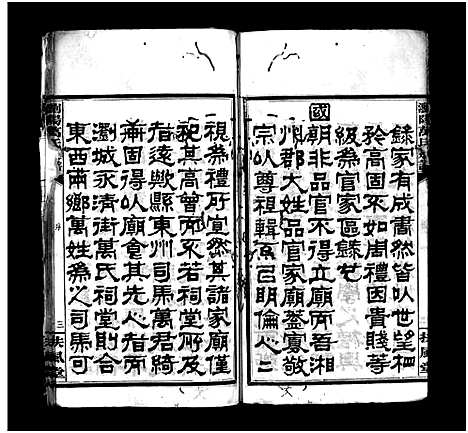 錄家有成書然皆以世望相
矜高固不如周禮因貴賤等
級為官家區錄也
國
朝非品官不得立廟而吾湘
州郡大姓品官家廟蓋寡敬
宗以尊祖輯系召明倫人二
視為禮所宜然其諸家廟僅
祀其高曾而不若祠堂所及
指遠歟縣東州司馬萬君綺
齋固得以廟食其先人指而
瀏城永清街萬氏祠堂則合
東西兩鄉萬姓為之司馬可
三
扶風堂